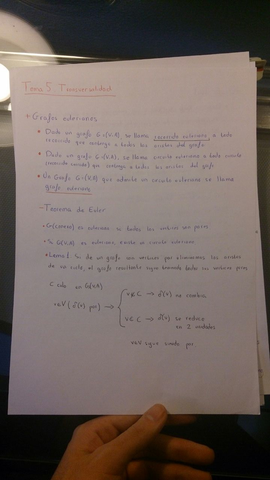 Tema 5 Transversalidad
* Grafos eulerianos
• Dado un grafo G=(V,A) se llama recorrido euleriano a todo
recorrido que contenga a todas las aristas del grafo
• Dado un grafo G=(V,A), se llama circuito euleriano a todo circuito
(recorrido cerrado) que contenga a todas las aristas del grafo
• Un Grafo G=(V,A) que admite un circuito euleriano se llama
grafo euleriano
- Teorema de Euler
• G(conexo) es euleriano si todos los vertices son pares
• Si G(V,A) es euleriano existe un circuito euleriano
• Lema: Si de un grafo con vertices par eliminamos las aristas
de un ciclo, el grafo resultante sigue teniendo todos los vertices pares
C ciclo en G(V,A)
v∈V (δ(v) par) → v∉C → δ(v) no cambia
v∈C → δ(v) se reduce
en 2 unidades
v∈V sigue siendo par